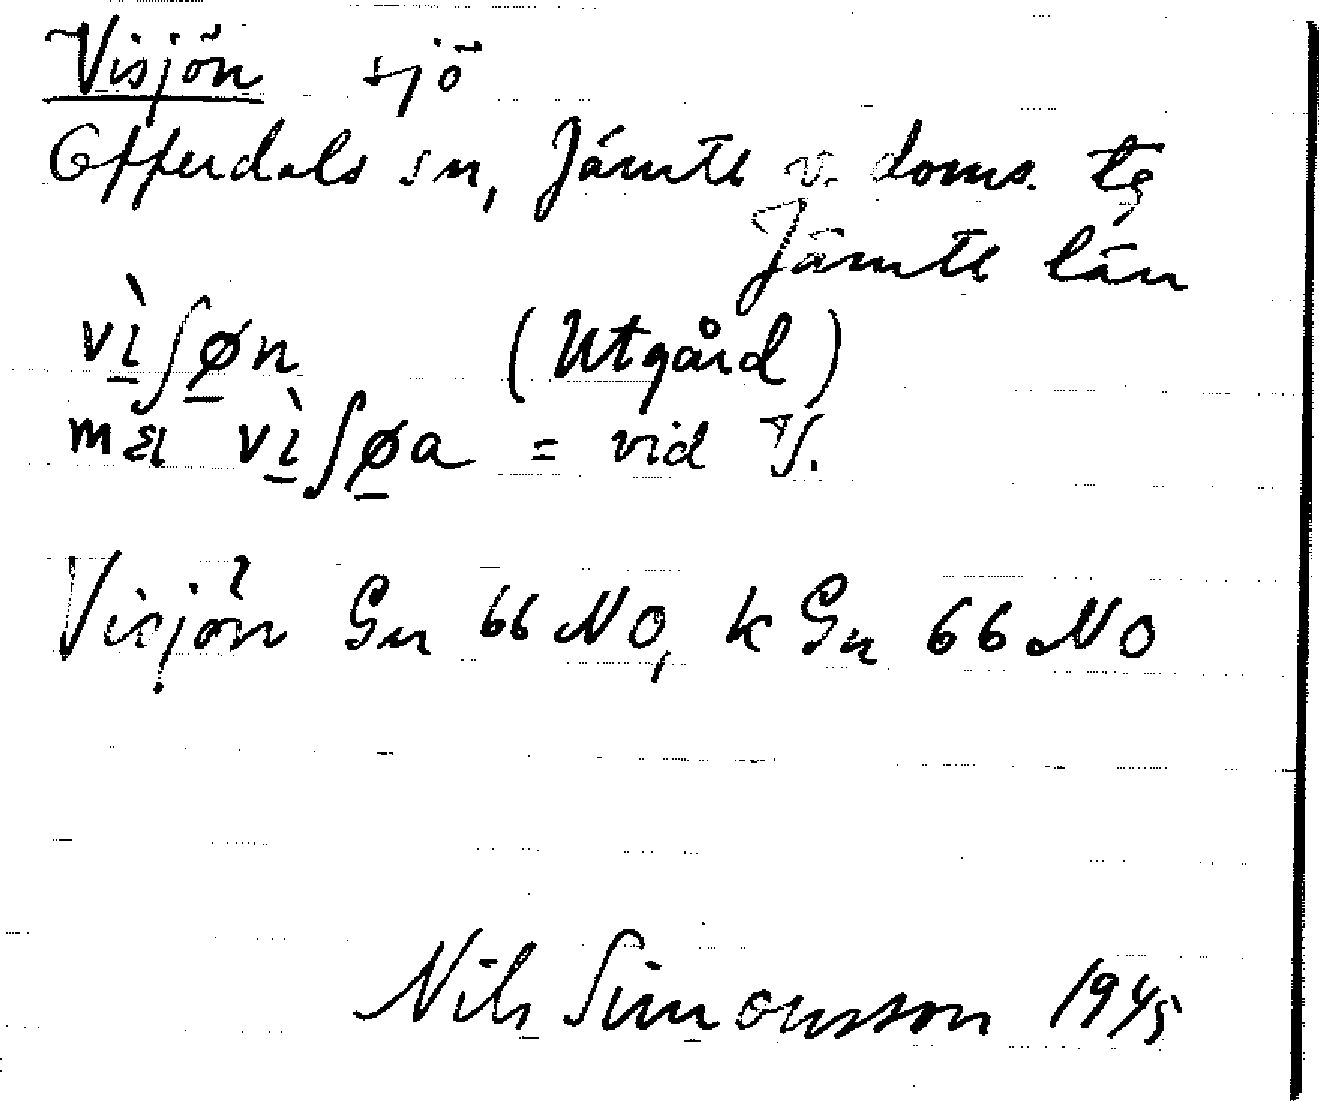 Visjön sjö
Offerdals sn, Jämtl v. doms. tg
Jämtl län
vìʃøn (Utgård)
mæ vìʃøa = vid V.
Visjön Gn 66 NO, k Gn 66 NO
Nils Simonsson 1945